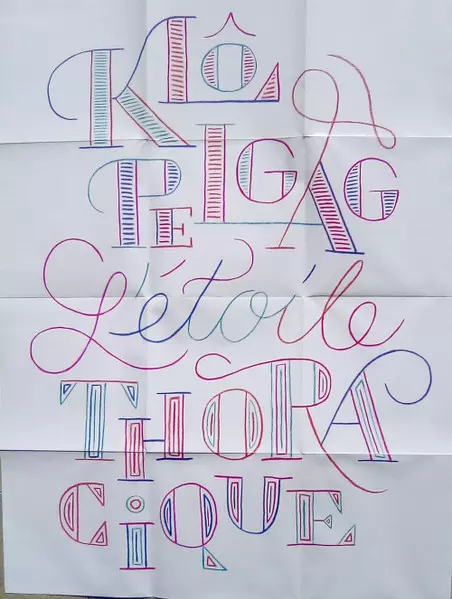 KLÔ
PELGAG
L'étoile
THORA
CiQUE